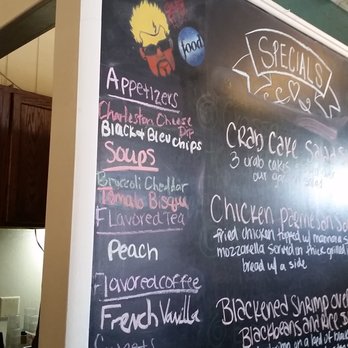 food
Appetizers
Charleston Cheese
Dip
Black & Bleu chips
Soups
Broccoli Cheddar
Tomato Bisque
Flavored Tea
Peach
Flavored coffee
French Vanilla
SPECIALS
Crab Cake Salad
3 crab cakes
our
Chicken Parmesan
fried chicken topped w/ marinara
mozzarella served on thick grilled
bread w/ a side
Blackened Shrimp over
Blackbeans and Rice
on a bed of